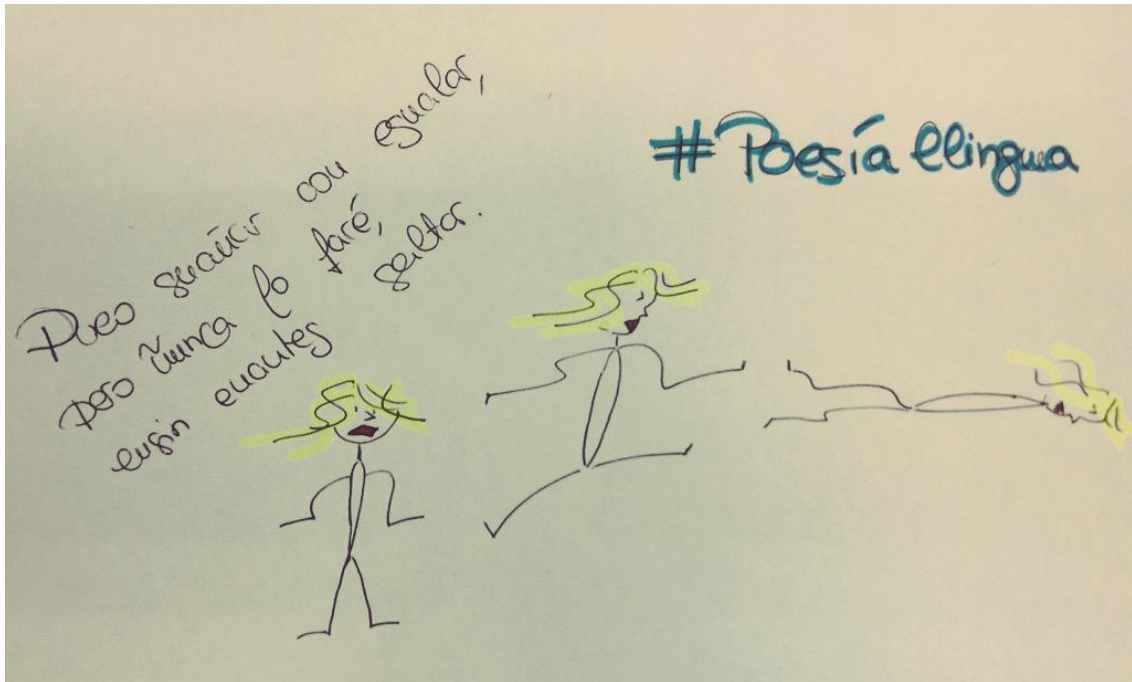 Pueo suañar con esnalar,
pero ñunca lo faré,
ensin enantes saltar.
#Poesía llingua